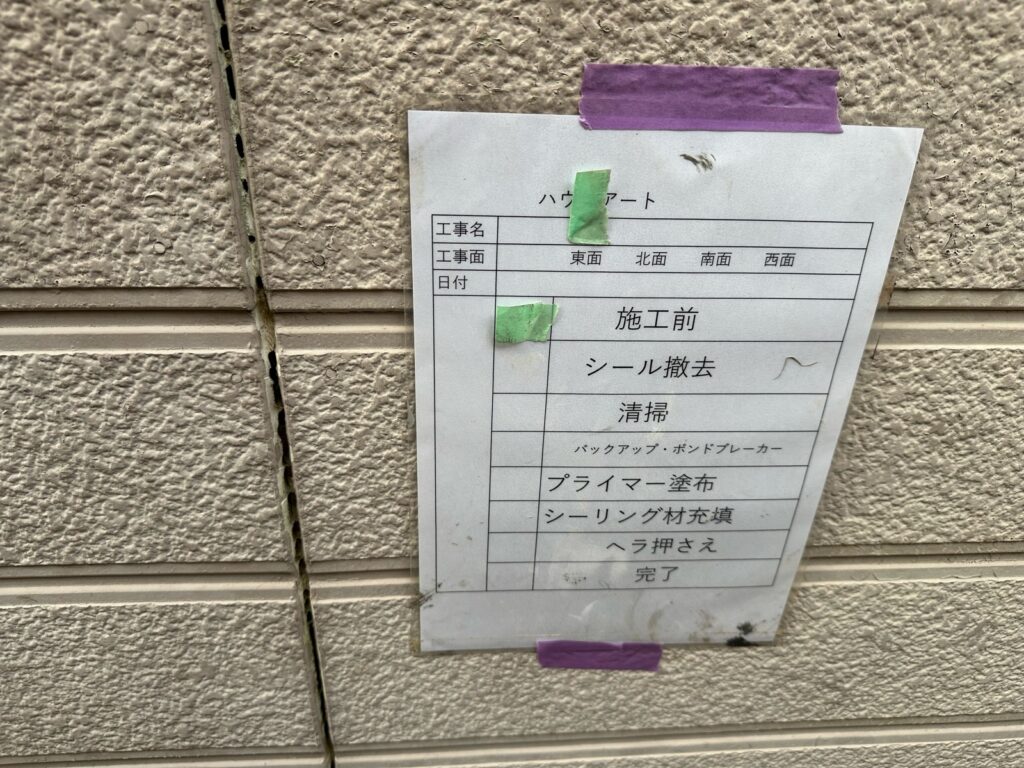 ハウ アート
工事名
工事面 東面 北面 南面 西面
日付
施工前
シール撤去
清掃
バックアップ・ボンドブレーカー
プライマー塗布
シーリング材充填
ヘラ押さえ
完了